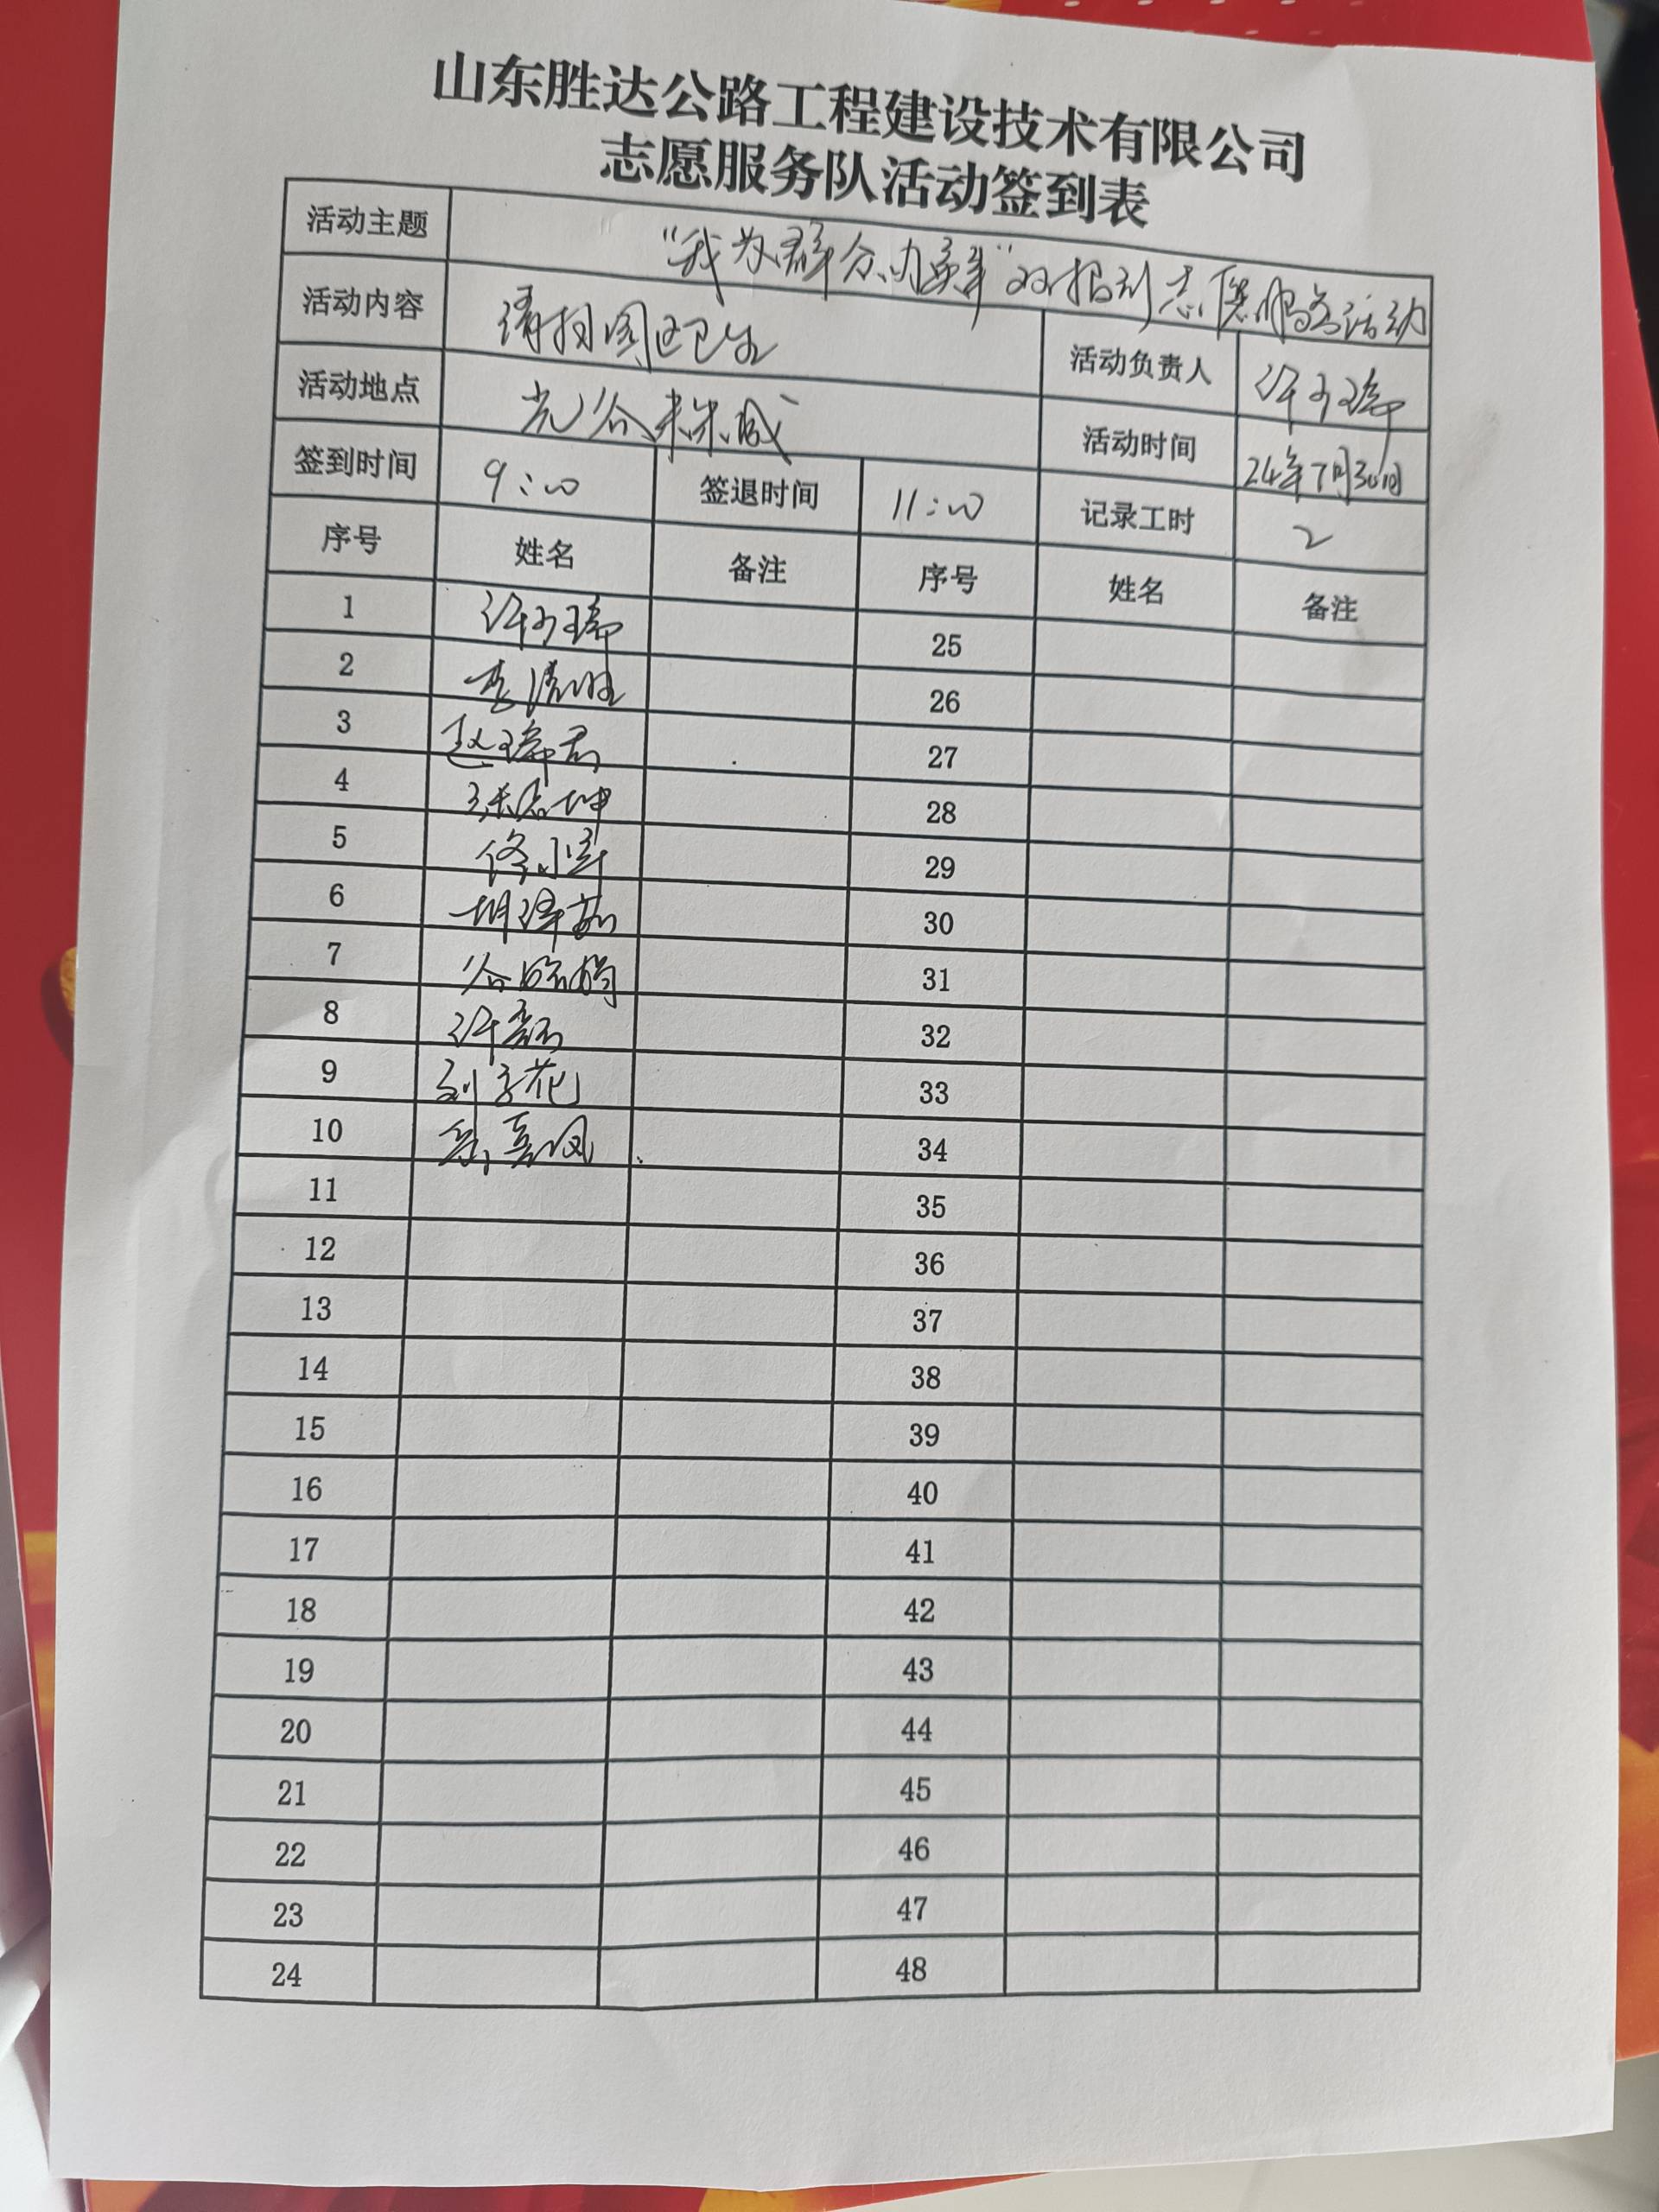 山东胜达公路工程建设技术有限公司
志愿服务队活动签到表
活动主题 "我为群众办实事"双报到志愿服务活动
活动内容 清扫园区卫生 活动负责人
活动地点 光谷未来城 活动时间 24年7月30日
签到时间 9:00 签退时间 11:00 记录工时 2
序号 姓名 备注 序号 姓名 备注
1 25
2 26
3 赵瑞君 27
4 28
5 佟小军 29
6 30
7 31
8 许磊 32
9 刘子花 33
10 34
11 35
12 36
13 37
14 38
15 39
16 40
17 41
18 42
19 43
20 44
21 45
22 46
23 47
24 48